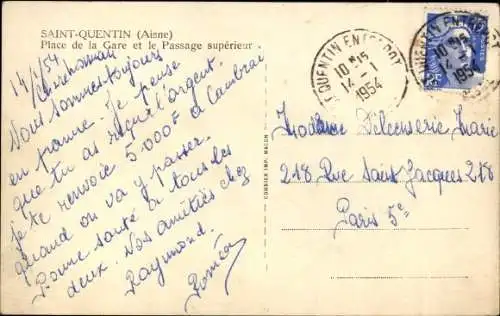 SAINT-QUENTIN (Aisne)
Place de la Gare et le Passage supérieur.
14/1/54
Nous sommes toujours
en panne. Je pense
que tu as reçu l'argent.
je te renvoie 5.000F à Cambrai
quand on va y passer.
Bonne santé à tous les
deux. Nos amitiés chez
Raymond.
COMBIER IMP. MACON
ST QUENTIN ENTREPOT
10 H 15
14 - 1
1954
ST QUENTIN ENTREPOT
10 H 15
14 - 1
1954
Madame Marie
218 Rue Saint Jacques 218
Paris 5e